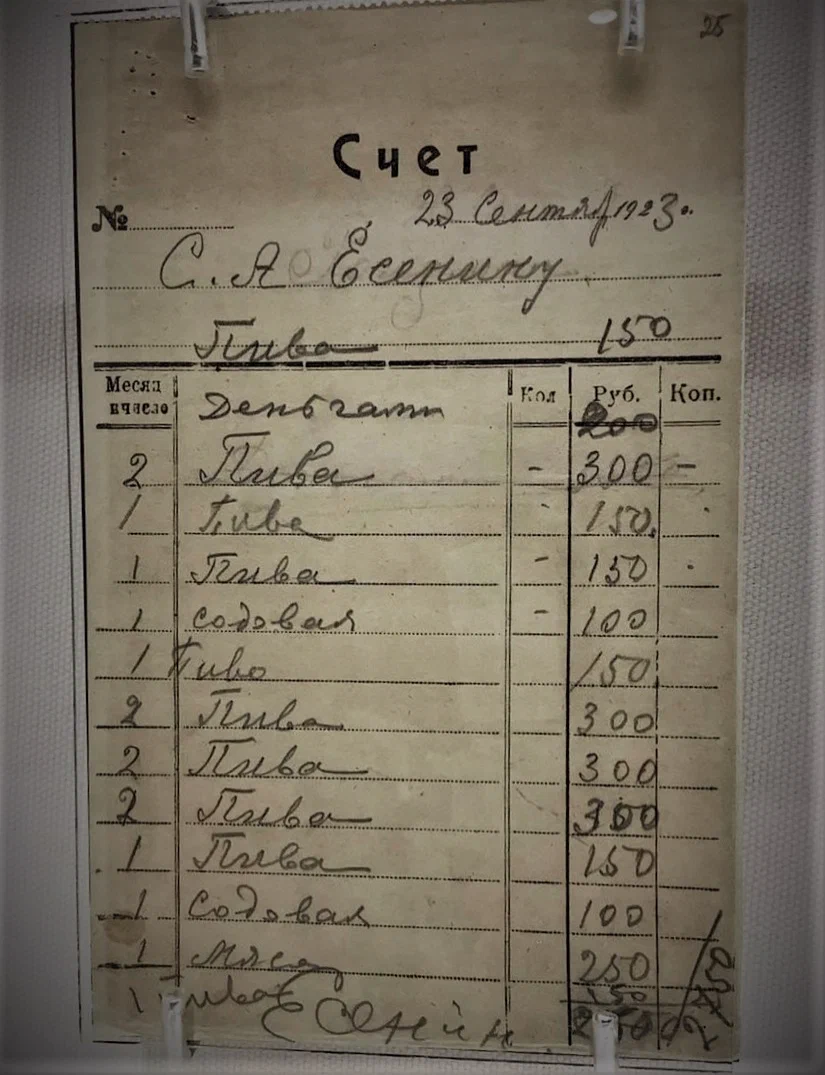 25
Счет
№ 23 Сентяб 1923.
С. А Есенину
Пива 150
Месяц и число Деньгами Кол Руб. Коп.
200
2 Пива - 300 -
1 Пива - 150
1 Пива - 150
1 содовая - 100
1 Пиво 150
2 Пива 300
2 Пива 300
2 Пива 300
1 Пива 150
1 Содовая 100
1 Мясо 250
1 Пива 150
Есенин